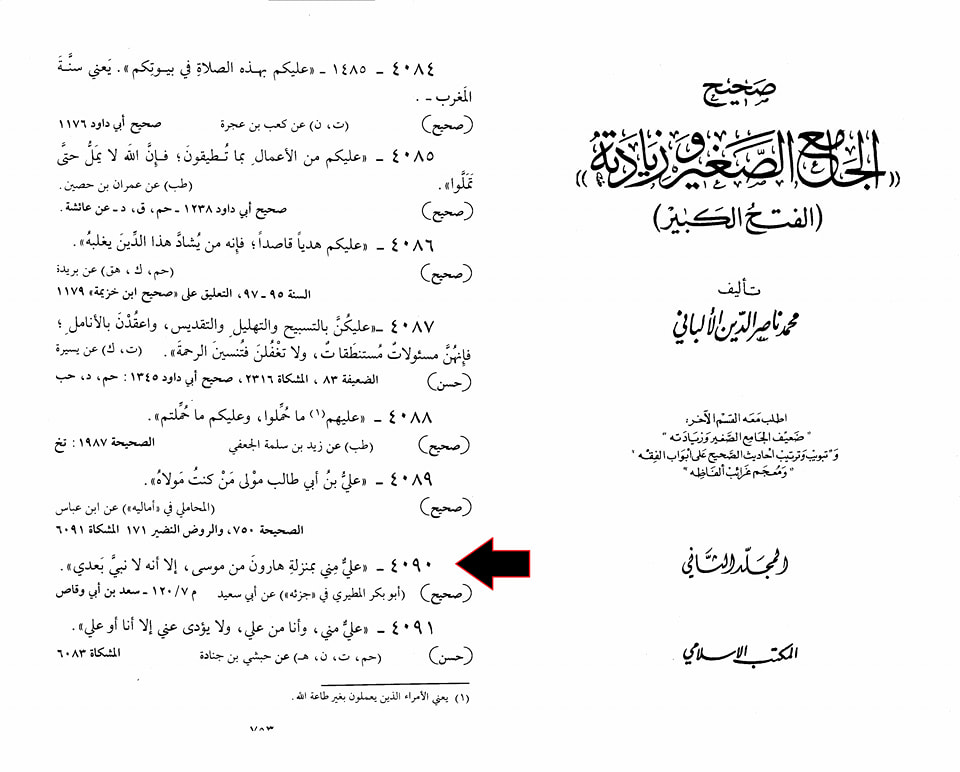 صحيح
«الجامع الصغير وزيادته»
(الفتح الكبير)
تأليف
محمد ناصر الدين الألباني
اطلب معه القسم الآخر:
"ضعيف الجامع الصغير وزيادته"
و"تبويب وترتيب أحاديث الصحيح على أبواب الفقه"
"ومعجم غرائب ألفاظه"
المجلد الثاني
المكتب الاسلامي
٤٠٨٤ - ١٤٨٥ - «عليكم بهذه الصلاةِ في بيوتِكم». يَعني سنَّةَ
المَغربِ - .
(صحيح) (ت، ن) عن كعب بن عجرة صحيح أبي داود ١١٧٦
٤٠٨٥ - «عليكم من الأعمالِ بما تُطيقونَ؛ فإنَّ الله لا يَملُّ حتَّى
تَملُّوا». (طب) عن عمران بن حصين.
(صحيح) صحيح أبي داود ١٢٣٨ - حم، ق، د - عن عائشة.
٤٠٨٦ - «عليكم هدياً قاصداً؛ فإنه من يُشادَّ هذا الدِّينَ يغلبهُ».
(صحيح) (حم، ك، هق) عن بريدة
السنة ٩٥ - ٩٧، التعليق على «صحيح ابن خزيمة» ١١٧٩
٤٠٨٧ - «عليكُنَّ بالتسبيحِ والتهليلِ والتقديس، واعقُدْنَ بالأنامل؛
فإنهُنَّ مسئولاتٌ مُستنطَقاتٌ، ولا تَغْفُلنَ فتُنسينَ الرحمةَ». (ت، ك) عن يسيرة
(حسن) الضعيفة ٨٣، المشكاة ٢٣١٦، صحيح أبي داود ١٣٤٥: حم، د، حب
٤٠٨٨ - «عليهم(١) ما حُمِّلوا، وعليكم ما حُمِّلتم».
(صحيح) (طب) عن زيد بن سلمة الجعفي الصحيحة ١٩٨٧: تخ
٤٠٨٩ - «عليُّ بنُ أبي طالب موْلى مَنْ كنتُ مَولاهُ».
(صحيح) (المحاملي في «أماليه») عن ابن عباس
الصحيحة ٧٥٠، والروض النضير ١٧١ المشكاة ٦٠٩١
٤٠٩٠ - «عليٌّ مِني بمنزلةِ هارونَ من موسى، إلا أنه لا نبيَّ بَعدي».
(صحيح) (أبو بكر المطيري في «جزئه») عن أبي سعيد م ٧/١٢٠ - سعد بن أبي وقاص
٤٠٩١ - «عليٌّ مني، وأنا من علي، ولا يؤدي عني إلا أنا أو علي».
(حسن) (حم، ت، ن، هـ) عن حبشي بن جنادة المشكاة ٦٠٨٣
(١) يعني الأمراء الذين يعملون بغير طاعة الله.
٧٥٣